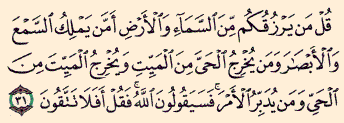 قُلْ مَن يَرْزُقُكُم مِّنَ السَّمَآءِ وَالْأَرْضِ أَمَّن يَمْلِكُ السَّمْعَ
وَالْأَبْصَٰرَ وَمَن يُخْرِجُ الْحَىَّ مِنَ الْمَيِّتِ وَيُخْرِجُ الْمَيِّتَ مِنَ
الْحَىِّ وَمَن يُدَبِّرُ الْأَمْرَ ۚ فَسَيَقُولُونَ اللَّهُ ۚ فَقُلْ أَفَلَا تَتَّقُونَ ٣١